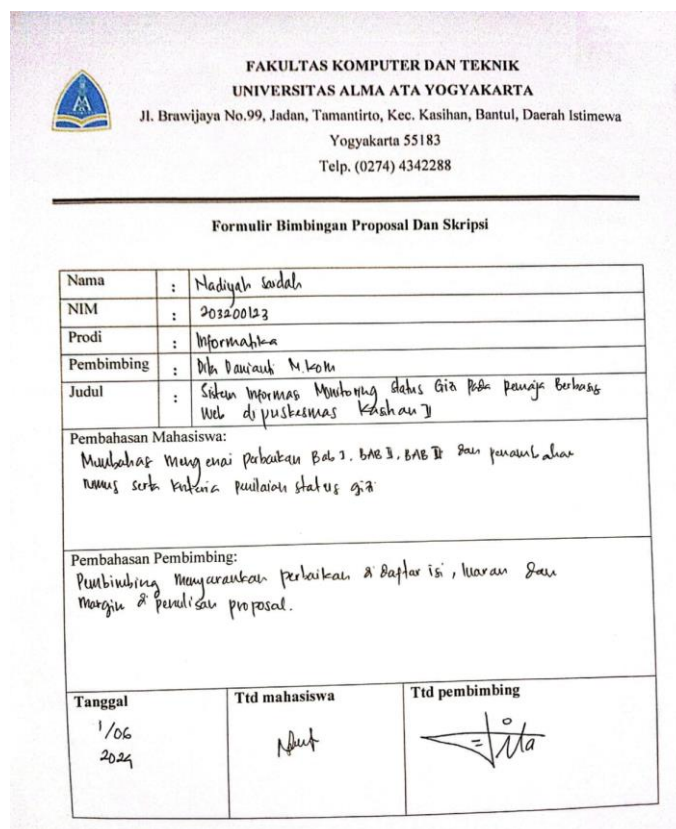 FAKULTAS KOMPUTER DAN TEKNIK
UNIVERSITAS ALMA ATA YOGYAKARTA
Jl. Brawijaya No.99, Jadan, Tamantirto, Kec. Kasihan, Bantul, Daerah Istimewa
Yogyakarta 55183
Telp. (0274) 4342288
Formulir Bimbingan Proposal Dan Skripsi
Nama : Nadiyah Saidah
NIM : 203200123
Prodi : Informatika
Pembimbing : Dita Danianti M.Kom
Judul : Sistem Informasi Monitoring Status Gizi Pada Remaja Berbasis
Web di puskesmas Kasihan II
Pembahasan Mahasiswa:
Membahas mengenai perbaikan Bab I, BAB II, BAB III dan penambahan
rumus serta kriteria penilaian status gizi
Pembahasan Pembimbing:
Pembimbing menyarankan perbaikan di daftar isi, luaran dan
margin di penulisan proposal.
Tanggal Ttd mahasiswa Ttd pembimbing
1/06
2024